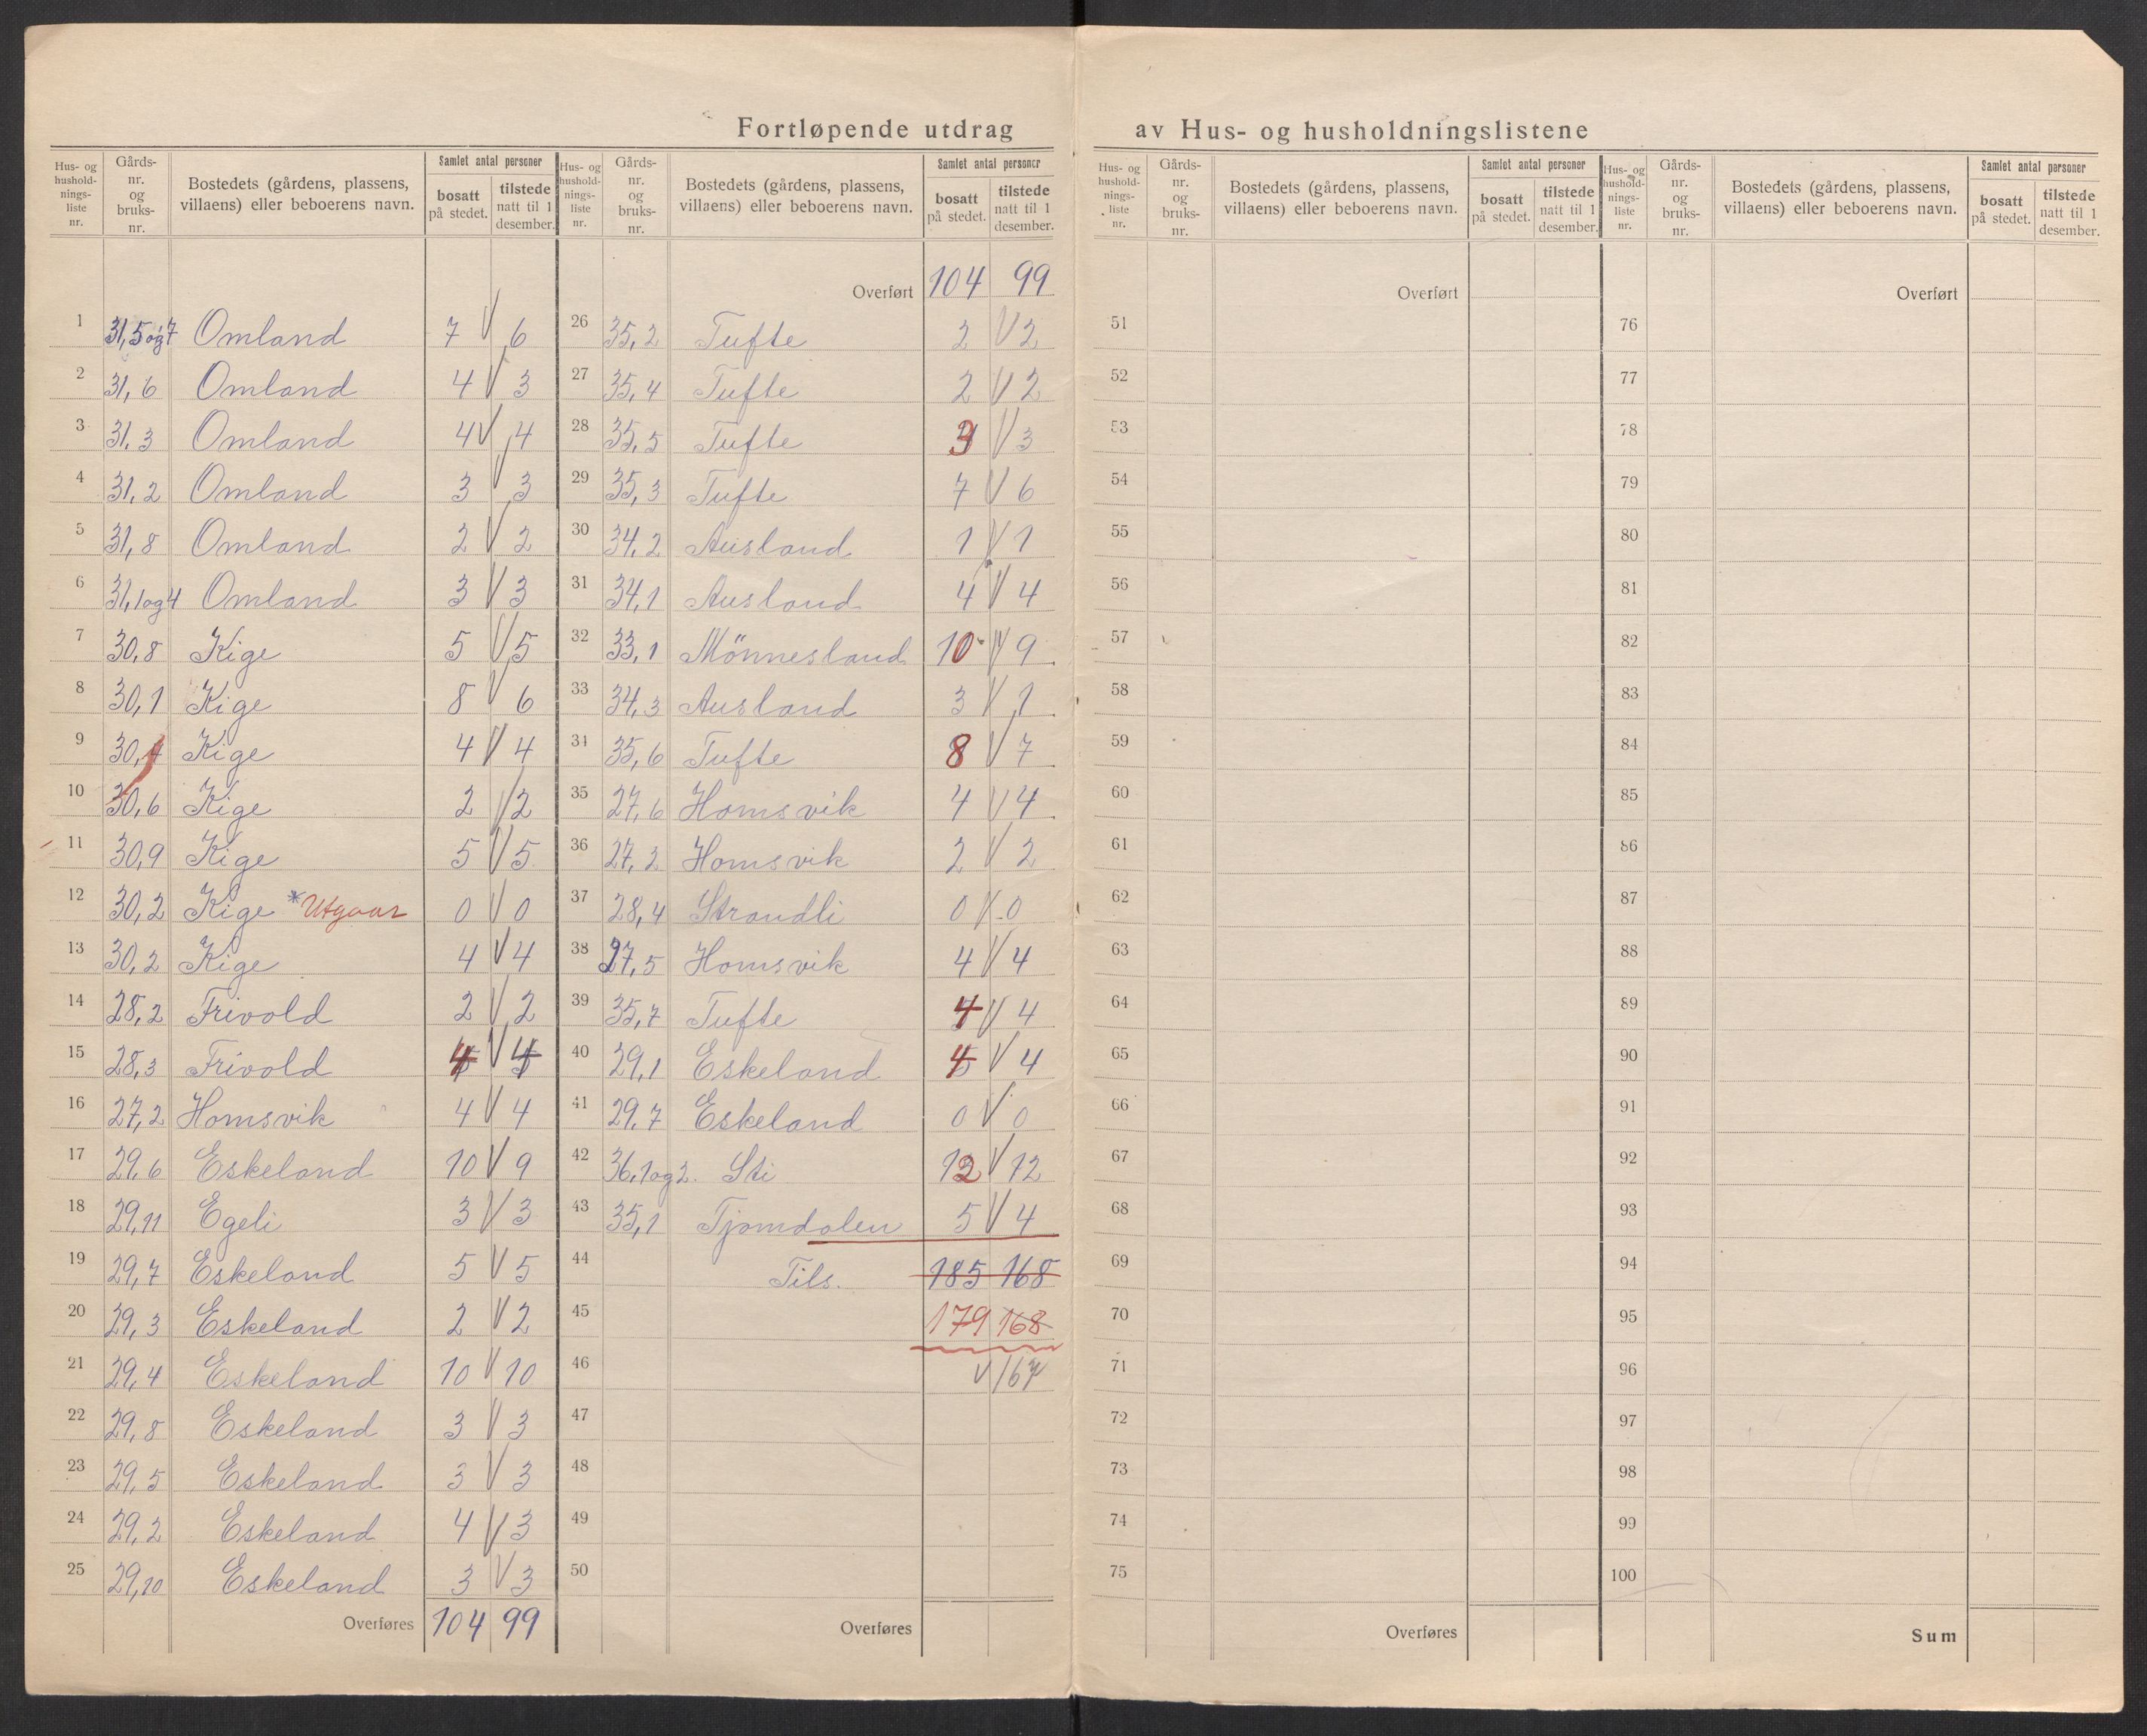 Fortløpende utdrag av Hus- og husholdningslistene
Hus- og hushold-nings-liste nr. | Gårds-nr. og bruks-nr. | Bostedets (gårdens, plassens, villaens) eller beboerens navn. | Samlet antal personer | bosatt på stedet. | tilstede natt til 1 desember.
1 31,5 og 7 Omland 7 V 6
2 31,6 Omland 4 V 3
3 31,3 Omland 4 V 4
4 31,2 Omland 3 V 3
5 31,8 Omland 2 V 2
6 31,1 og 4 Omland 3 V 3
7 30,8 Kige 5 V 5
8 30,1 Kige 8 V 6
9 30,4 Kige 4 V 4
10 30,6 Kige 2 V 2
11 30,9 Kige 5 V 5
12 30,2 Kige *Utgaar 0 V 0
13 30,2 Kige 4 V 4
14 28,2 Frivold 2 V 2
15 28,3 Frivold 4 V 4
16 27,2 Homsvik 4 V 4
17 29,6 Eskeland 10 V 9
18 29,11 Egeli 3 V 3
19 29,7 Eskeland 5 V 5
20 29,3 Eskeland 2 V 2
21 29,4 Eskeland 10 V 10
22 29,8 Eskeland 3 V 3
23 29,5 Eskeland 3 V 3
24 29,2 Eskeland 4 V 3
25 29,10 Eskeland 3 V 3
Overføres 104 99
Hus- og hushold-nings-liste nr. | Gårds-nr. og bruks-nr. | Bostedets (gårdens, plassens, villaens) eller beboerens navn. | Samlet antal personer | bosatt på stedet. | tilstede natt til 1 desember.
Overført 104 99
26 35,2 Tufte 2 V 2
27 35,4 Tufte 2 V 2
28 35,5 Tufte 3 V 3
29 35,3 Tufte 7 V 6
30 34,2 Ausland 1 V 1
31 34,1 Ausland 4 V 4
32 33,1 Mönnesland 10 V 9
33 34,3 Ausland 3 V 1
34 35,6 Tufte 8 V 7
35 27,6 Homsvik 4 V 4
36 27,2 Homsvik 2 V 2
37 28,4 Strandli 0 V 0
38 27,5 Homsvik 4 V 4
39 35,7 Tufte 4 V 4
40 29,1 Eskeland 4 V 4
41 29,7 Eskeland 0 V 0
42 36,1 og 2. Sti 12 V 12
43 35,1 Tjomdalen 5 V 4
44 Tils. 185 168
45 179 168
46 V 167
47
48
49
50
Overføres
Hus- og hushold-nings-liste nr. | Gårds-nr. og bruks-nr. | Bostedets (gårdens, plassens, villaens) eller beboerens navn. | Samlet antal personer | bosatt på stedet. | tilstede natt til 1 desember.
Overført
51
52
53
54
55
56
57
58
59
60
61
62
63
64
65
66
67
68
69
70
71
72
73
74
75
Overføres
Hus- og hushold-nings-liste nr. | Gårds-nr. og bruks-nr. | Bostedets (gårdens, plassens, villaens) eller beboerens navn. | Samlet antal personer | bosatt på stedet. | tilstede natt til 1 desember.
Overført
76
77
78
79
80
81
82
83
84
85
86
87
88
89
90
91
92
93
94
95
96
97
98
99
100
Sum